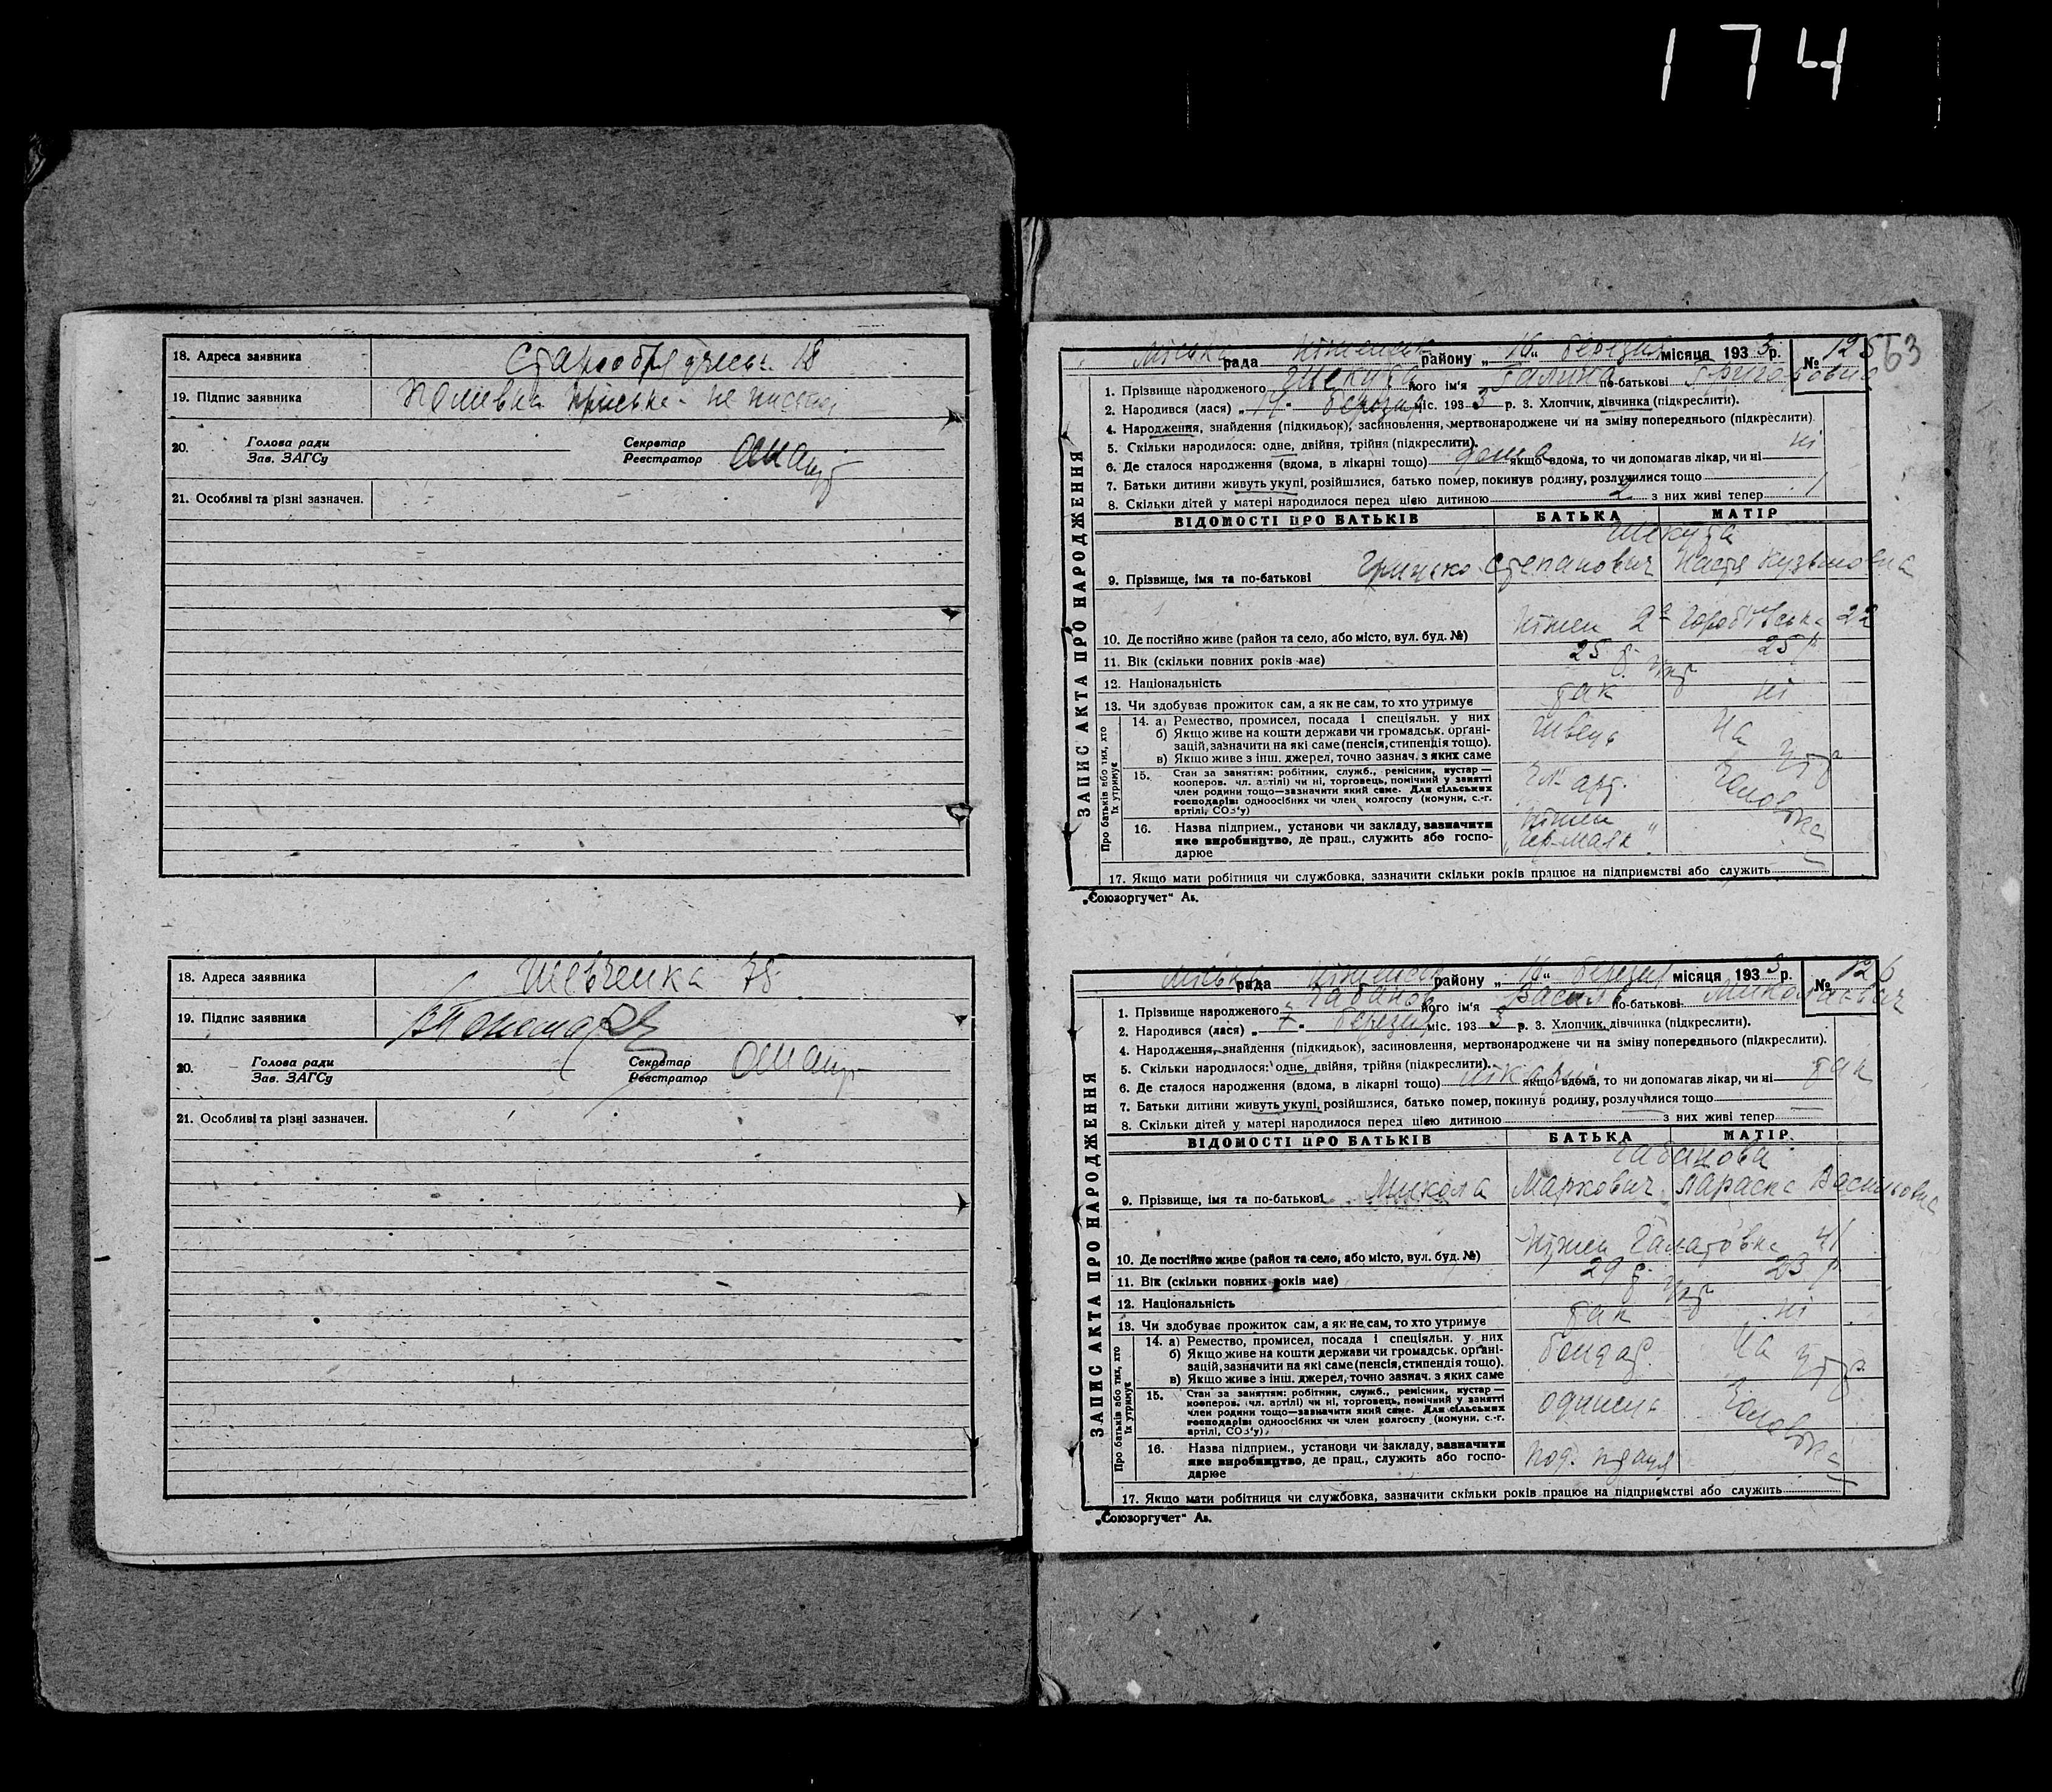 174
18. Адреса заявника Старообрядчеськ. 18
19. Підпис заявника не письм
20. Голова ради Секретар
Зав. ЗАГСу Реєстратор
21. Особливі та різні зазначен.
18. Адреса заявника Шевченка 78
19. Підпис заявника
20. Голова ради Секретар
Зав. ЗАГСу Реєстратор
21. Особливі та різні зазначен.
63
ЗАПИС АКТА ПРО НАРОДЖЕННЯ
Міська рада Ніженськ району „16“ березня місяця 1933 р. № 125
1. Прізвище народженого Шекура його ім'я Галина по-батькові Григоровна
2. Народився (лася) „14“ березня міс. 1933 р. 3. Хлопчик, дівчинка (підкреслити).
4. Народження, знайдення (підкидьок), засиновлення, мертвонароджене чи на зміну попереднього (підкреслити)
5. Скільки народилося: одне, двійня, трійня (підкреслити).
6. Де сталося народження (вдома, в лікарні тощо) дома якщо вдома, то чи допомагав лікар, чи ні ні
7. Батьки дитини живуть укупі, розійшлися, батько помер, покинув родину, розлучилися тощо
8. Скільки дітей у матері народилося перед цією дитиною 2 з них живі тепер 1
ВІДОМОСТІ ПРО БАТЬКІВ БАТЬКА МАТІР
Шекура
9. Прізвище, імя та по-батькові Грицько Степанович Настя Кузьмовна
10. Де постійно живе (район та село, або місто, вул. буд. №) Ніжен 2а 22
11. Вік (скільки повних років має) 25 р. 25 р
12. Національність Укр
13. Чи здобуває прожиток сам, а як не сам, то хто утримує так ні
Про батьків або тих, хто їх утримує
14. а) Ремество, промисел, посада і спеціяльн. у них Швець На утр
б) Якщо живе на кошти держави чи громадськ. організацій, зазначити на які саме (пенсія, стипендія тощо).
в) Якщо живе з інш. джерел, точно зазнач. з яких саме
15. Стан за заняттям: робітник, служб., ремісник, кустар — Чл. арт. Чоловіка
кооперов. чл. артілі) чи ні, торговець, помічний у занятті
член родини тощо—зазначити який саме. Для сільських
господарів: одноосібних чи член колгоспу (комуни, с.-г.
артілі, СОЗ'у)
16. Назва підприєм., установи чи закладу, зазначити Ніжен
яке виробництво, де прац., служить або госпо- „Чер-маяк“
дарює
17. Якщо мати робітниця чи службовка, зазначити скільки років працює на підприємстві або служить
„Союзоргучет“ Ав.
ЗАПИС АКТА ПРО НАРОДЖЕННЯ
Міська рада Ніженськ району „16“ березня місяця 1933 р. № 126
1. Прізвище народженого Чабанов його ім'я Василь по-батькові Миколаєвич
2. Народився (лася) „7“ березня міс. 1933 р. 3. Хлопчик, дівчинка (підкреслити).
4. Народження, знайдення (підкидьок), засиновлення, мертвонароджене чи на зміну попереднього (підкреслити).
5. Скільки народилося: одне, двійня, трійня (підкреслити).
6. Де сталося народження (вдома, в лікарні тощо) лікарні якщо вдома, то чи допомагав лікар, чи ні так
7. Батьки дитини живуть укупі, розійшлися, батько помер, покинув родину, розлучилися тощо
8. Скільки дітей у матері народилося перед цією дитиною з них живі тепер
ВІДОМОСТІ ПРО БАТЬКІВ БАТЬКА МАТІР
Чабанова
9. Прізвище, імя та по-батькові Микола Маркович Параска Васильовна
10. Де постійно живе (район та село, або місто, вул. буд. №) Ніжен 41
11. Вік (скільки повних років має) 29 р. 23 р
12. Національність Укр
13. Чи здобуває прожиток сам, а як не сам, то хто утримує так ні
Про батьків або тих, хто їх утримує
14. а) Ремество, промисел, посада і спеціяльн. у них бондар. На утр.
б) Якщо живе на кошти держави чи громадськ. організацій, зазначити на які саме (пенсія, стипендія тощо).
в) Якщо живе з інш. джерел, точно зазнач. з яких саме
15. Стан за заняттям: робітник, служб., ремісник, кустар — Чоловіка
кооперов. (чл. артілі) чи ні, торговець, помічний у занятті
член родини тощо—зазначити який саме. Для сільських
господарів: одноосібних чи член колгоспу (комуни, с.-г.
артілі, СОЗ'у)
16. Назва підприєм., установи чи закладу, зазначити
яке виробництво, де прац., служить або госпо- под. праця
дарює
17. Якщо мати робітниця чи службовка, зазначити скільки років працює на підприємстві або служить
„Союзоргучет“ Ав.